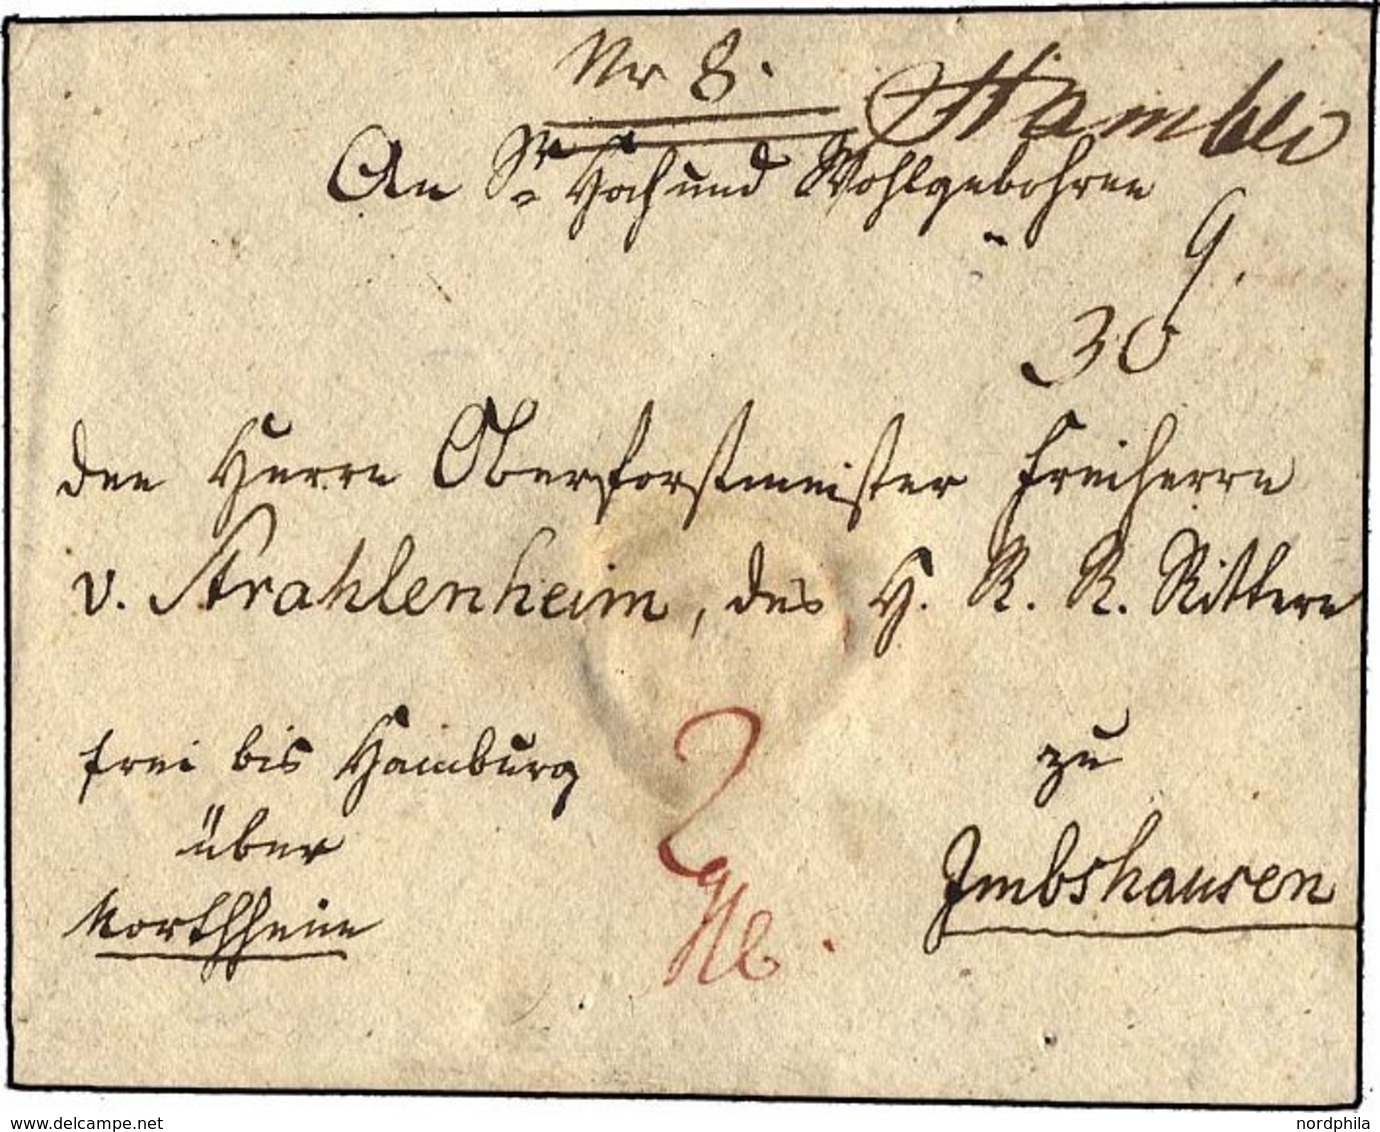 Nr 8.
An Sr Hoch und Wohlgebohren
9.
30
den Herrn Oberforstmeister Freiherrn
v. Strahlenheim, des H. R. R. Rittern
frei bis Hamburg
zu
über
Imbshausen
Northheim
2
delcampe.net
nordphila